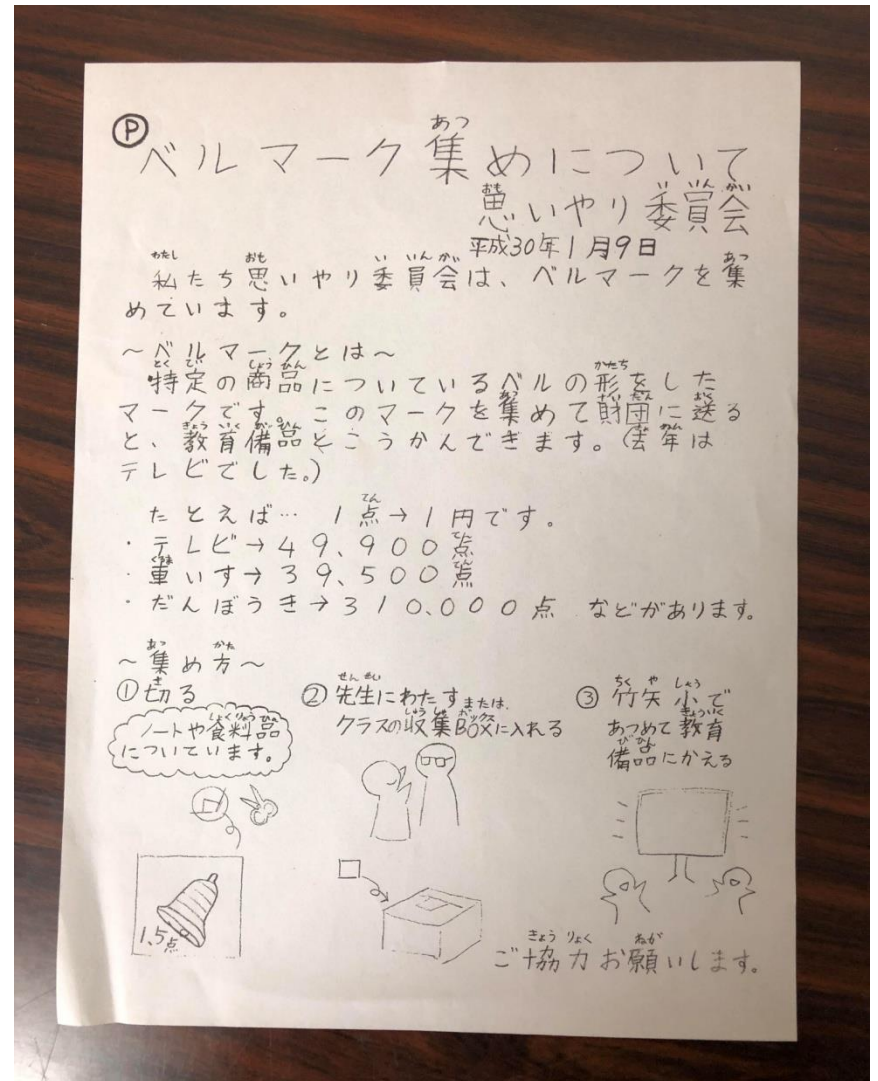 Ⓟ
ベルマーク集めについて
思いやり委員会
平成30年1月9日
私たち思いやり委員会は、ベルマークを集
めています。
~ベルマークとは~
特定の商品についているベルの形をした
マークです。このマークを集めて財団に送る
と、教育備品とこうかんできます。(去年は
テレビでした。)
たとえば… 1点→1円です。
・テレビ→49,900点
・車いす→39,500点
・だんぼうき→310,000点 などがあります。
~集め方~
①切る
ノートや食料品
についています。
1.5点
②先生にわたすまたは、
クラスの収集BOXに入れる
③竹矢小で
あつめて教育
備品にかえる
ご協力お願いします。